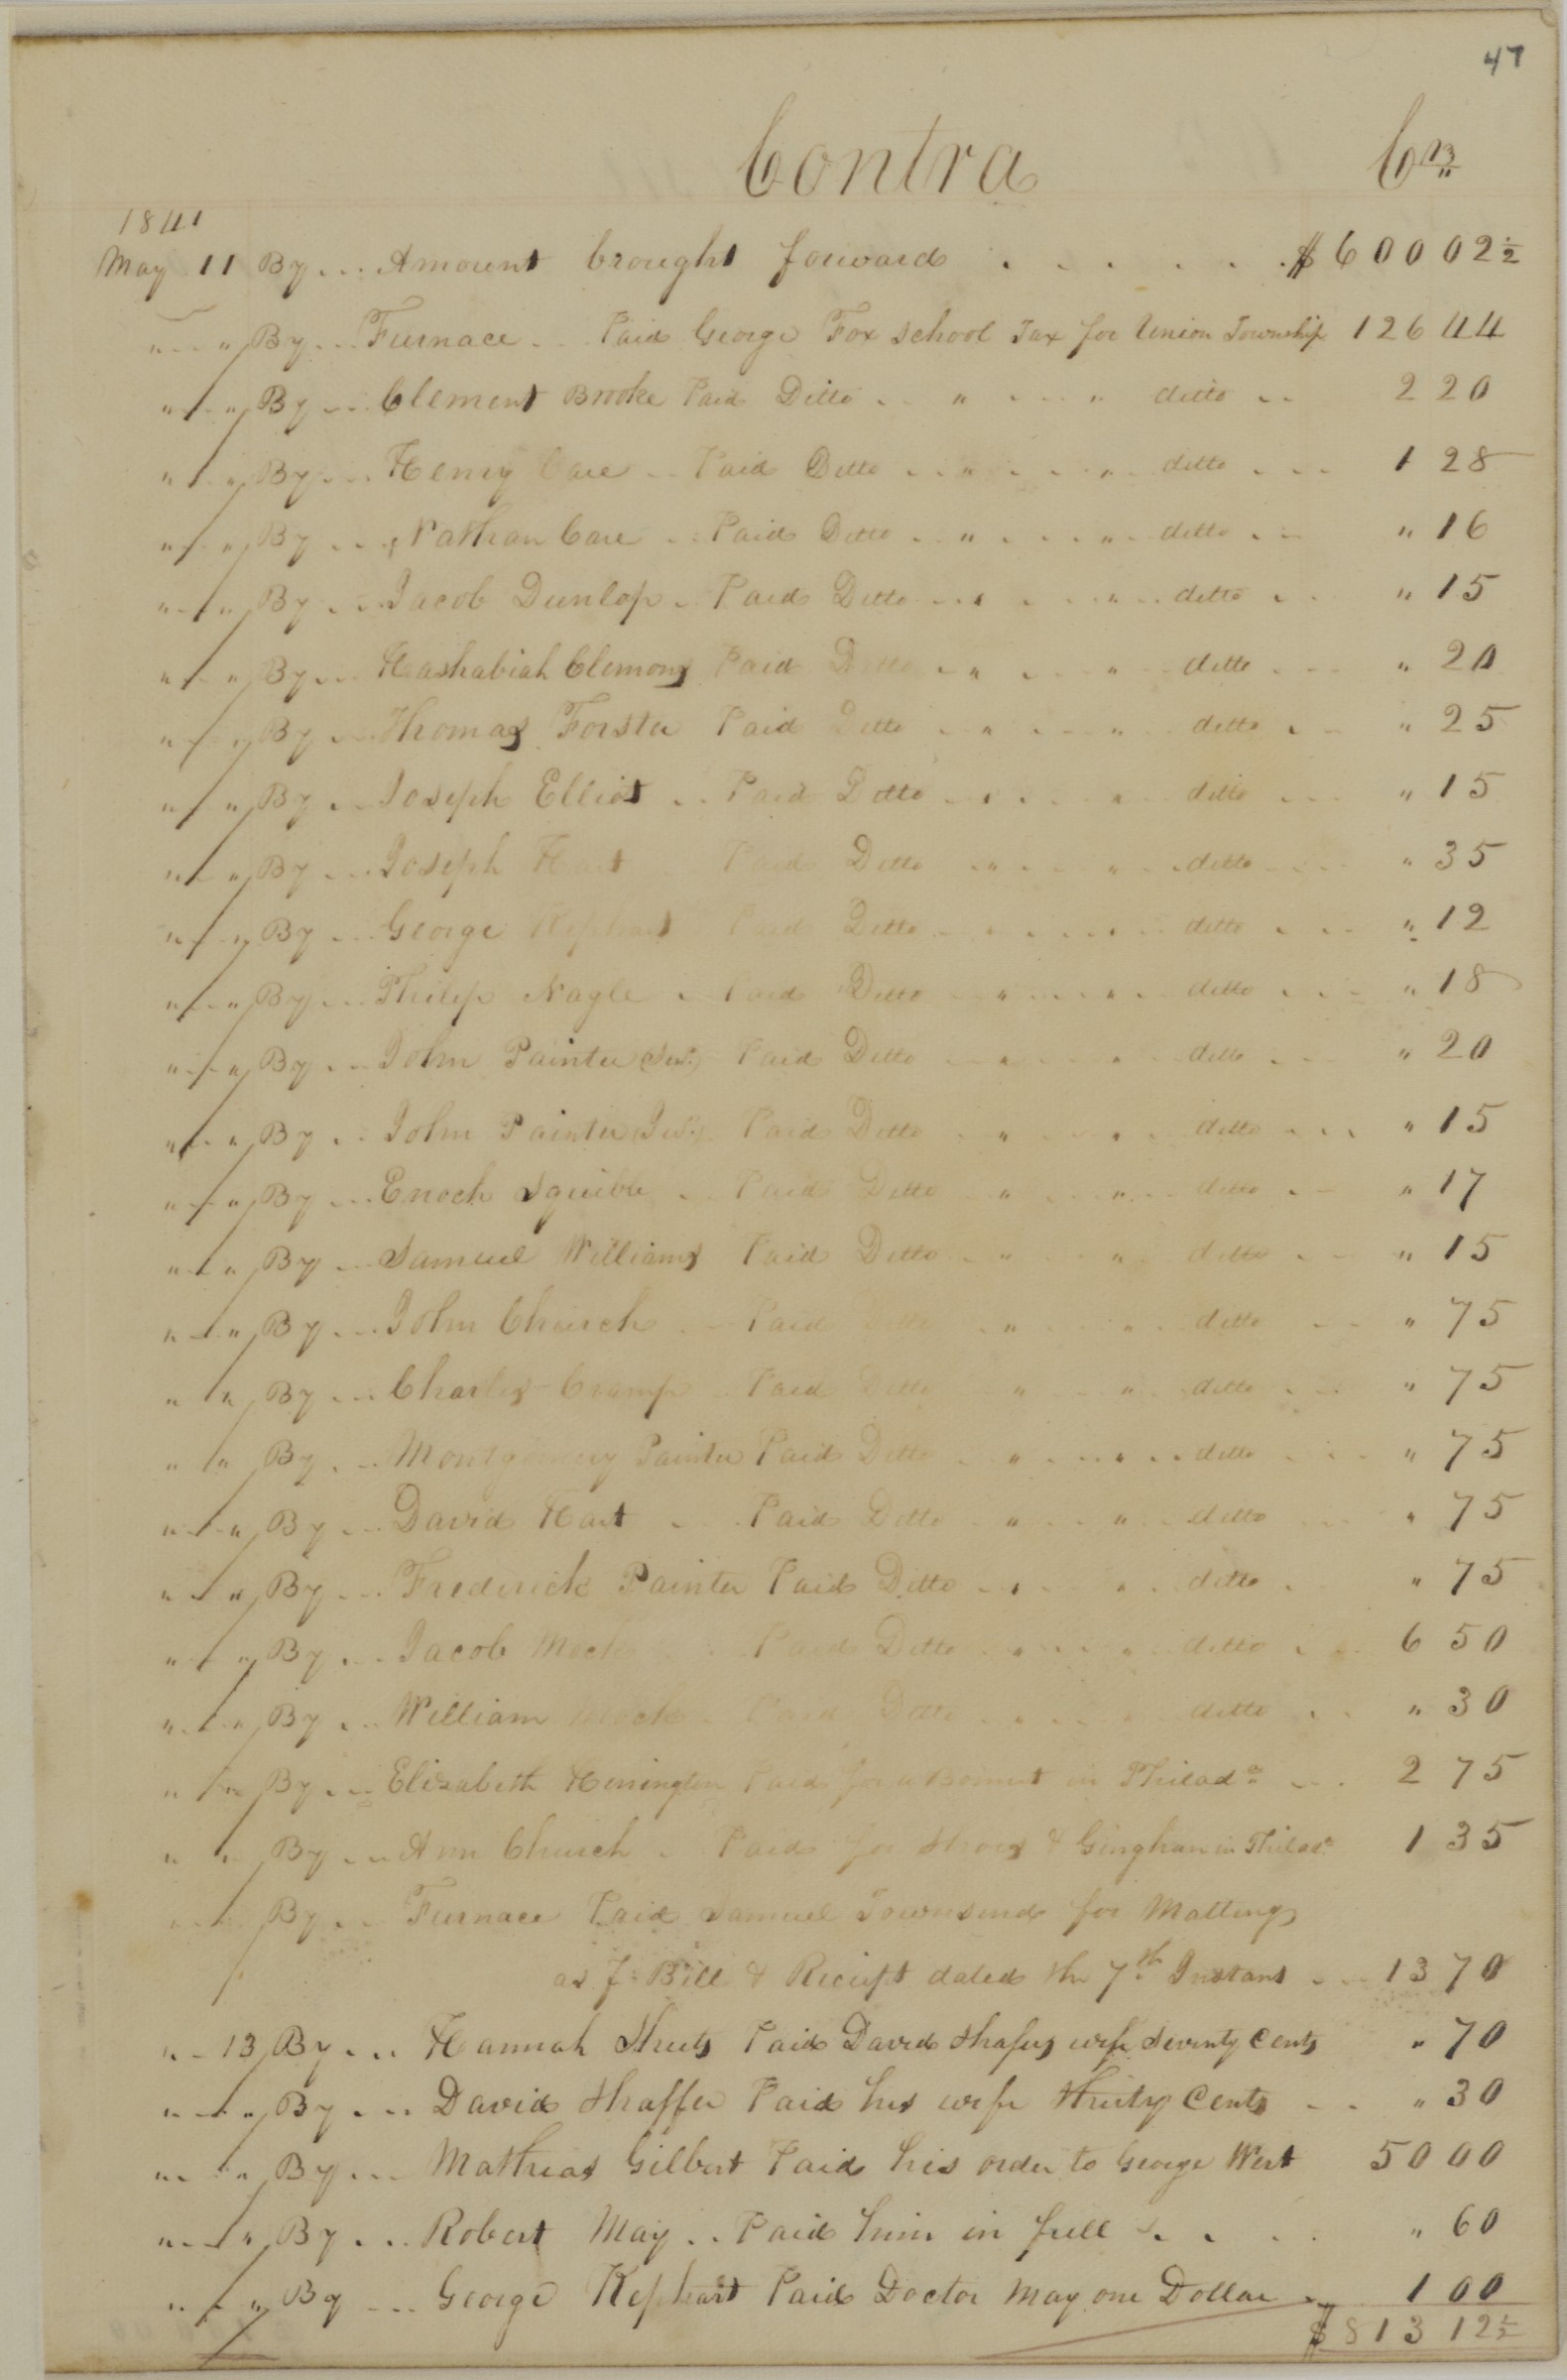 47
Contra Cr
1841
May 11 By ... Amount brought forward . . . . . . $ 600 02 ½
" " By ... Furnace .. Paid George Fox school Tax for Union Township 126 44
" " By ... Clement Brooke Paid Ditto .. " ... " ditto .. 2 20
" " By ... Henry Care .. Paid Ditto .. " ... " ditto ... 1 28
" " By ... Nathan Care .. Paid Ditto .. " ... " ditto .. " 16
" " By ... Jacob Dunlop . Paid Ditto .. " ... " ditto .. " 15
" " By ... Hashabiah Clemons Paid Ditto .. " ... " ditto ... " 20
" " By ... Thomas Forster Paid Ditto .. " ... " ditto .. " 25
" " By ... Joseph Elliot .. Paid Ditto .. " ... " ditto ... " 15
" " By ... Joseph Hart Paid Ditto .. " ... " ditto ... " 35
" " By ... George Kephart Paid Ditto .. " ... " ditto ... " 12
" " By ... Philip Nagle . Paid Ditto .. " ... " ditto ... " 18
" " By ... John Painter Senr. Paid Ditto .. " ... " ditto ... " 20
" " By .. John Painter Junr. Paid Ditto .. " ... " ditto ... " 15
" " By ... Enoch Squibb .. Paid Ditto .. " ... " ditto .. " 17
" " By ... Samuel Williams Paid Ditto .. " ... " ditto ... " 15
" " By ... John Church .. Paid Ditto .. " ... " ditto .. " 75
" " By ... Charles Cramp .. Paid Ditto " . " ditto ... " 75
" " By ... Montgomery Painter Paid Ditto .. " ... " ditto ... " 75
" " By ... David Hart . . Paid Ditto .. " ... " ditto ... " 75
" " By ... Frederick Painter Paid Ditto .. " . " ditto . " 75
" " By ... Jacob Mock Paid Ditto .. " ... " ditto .. 6 50
" " By ... William Mock . Paid Ditto .. " ... " ditto .. " 30
" " By ... Elizabeth Henington Paid for a Bonnet in Philada ... 2 75
" " By ... Ann Church . Paid for Shoes & Gingham in Philada 1 35
" " By ... Furnace Paid Samuel Townsend for Matting
as ⅌ Bill & Reciept dated the 7th Instant ... 13 70
" 13 By ... Hannah Sheets Paid David Shafers wife Seventy Cents " 70
" " By ... David Shaffer Paid his wife Thirty Cents .. " 30
" " By ... Mathias Gilbert Paid his order to George Wert 50 00
" " By ... Robert May .. Paid him in full . . . . " 60
" " By ... George Kephart Paid Doctor May one Dollar .. 1 00
$ 813 12 ½